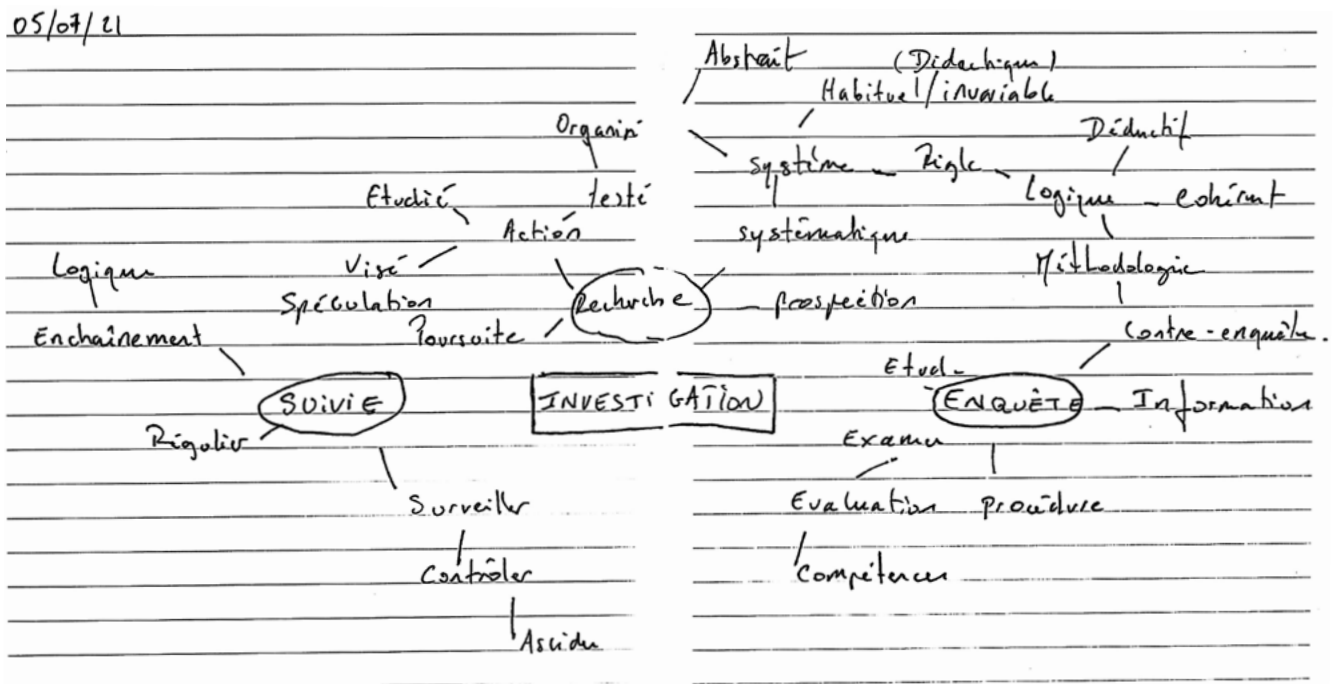 05/07/21
Abstrait
(Didactique)
Habituel/invariable
Organisé
Déductif
Système Règle
Etudié testé
Logique Cohérent
Action
systématique
Logique
Visé
Méthodologie
Spéculation
Recherche
prospection
Enchaînement
Poursuite
Contre-enquête.
Etud.
SUIVIE
INVESTIGATION
ENQUÊTE
Information
Régulier
Examen
Surveiller
Evaluation procédure
Contrôler
Compétences
Ascidu